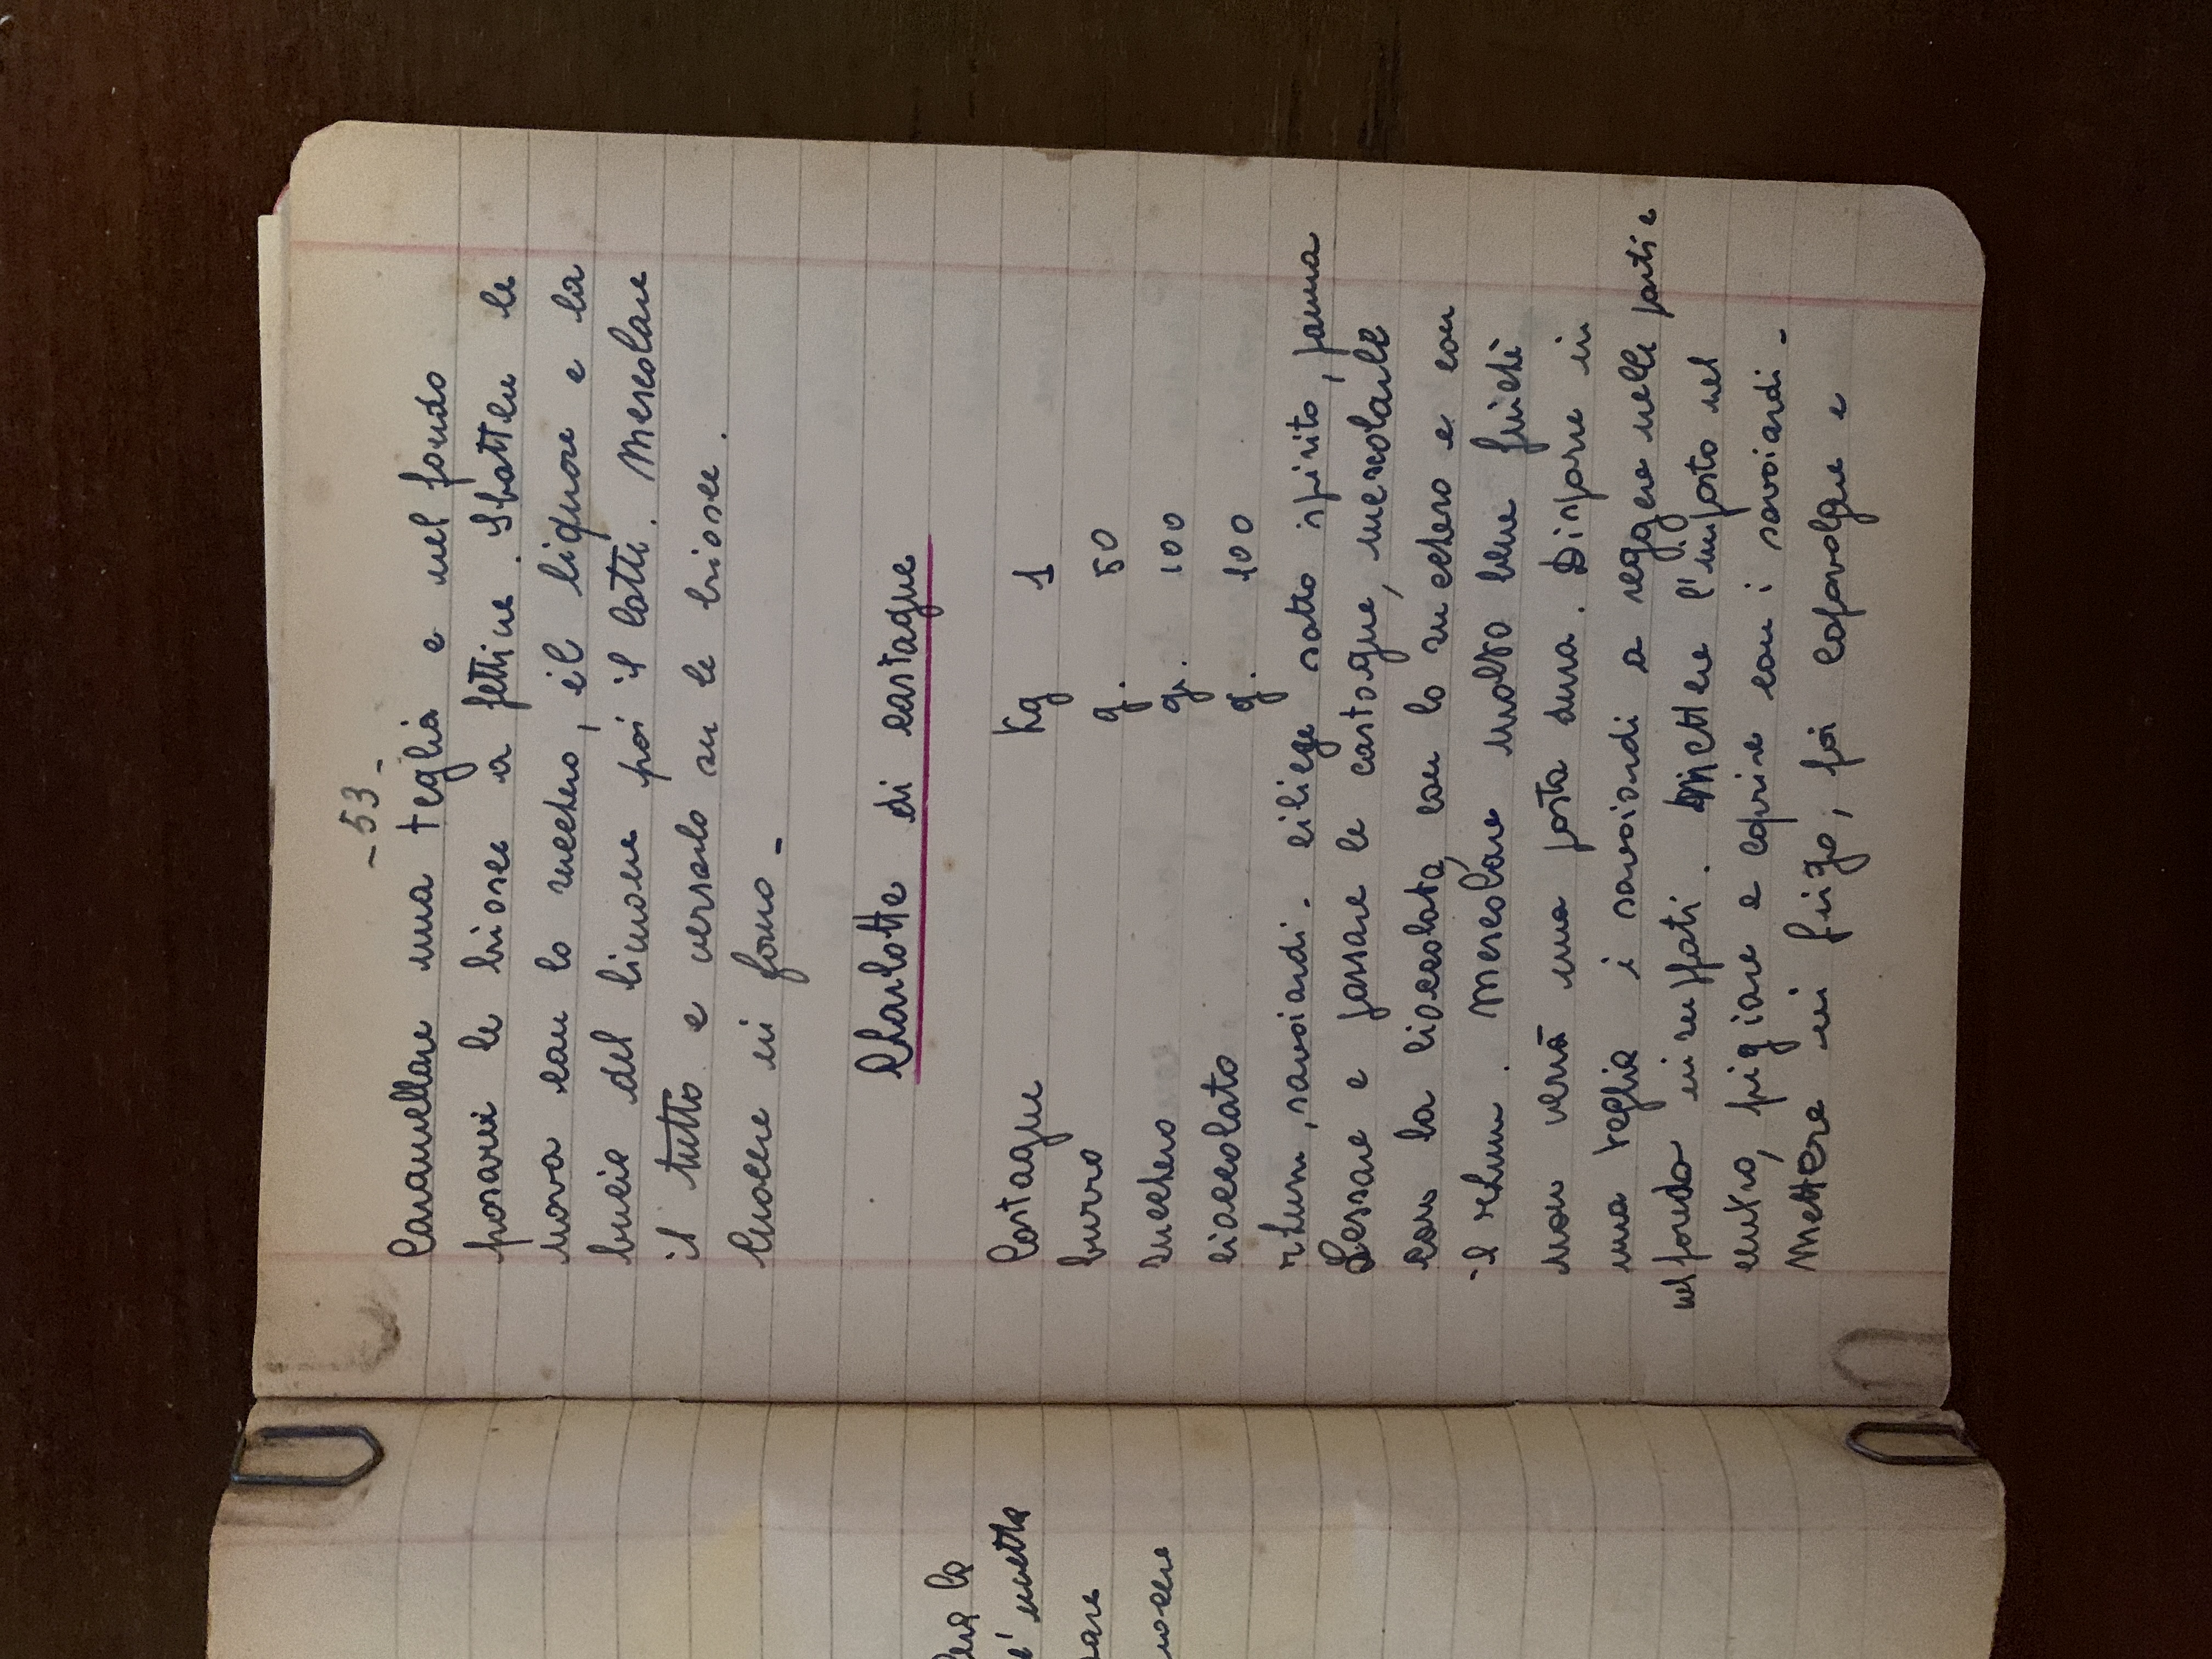 lera la
e' metta
sare
uocere
- 53 -
Caramellare una teglia e nel fondo
posarvi le briosce a fettine. Sbattere le
uova con lo zucchero, il liquore e la
bucia del limone poi il latte. Mescolare
il tutto e versarlo su le briosce.
Cuocere in forno -
Charlotte di castagne
Castagne Kg 1
burro g. 50
zucchero gr. 100
cioccolato g. 100
rhum, savoiardi. ciliege sotto spirito, panna
Lessare e passare le castagne, mescolarle
con la cioccolata, con lo zucchero e con
il rhum. Mescolare molto bene finchè
non verrà una pasta dura. Disporre in
una teglia i savoiardi a reggere nelle parti e
nel fondo inzuppati. Mettere l'impasto nel
centro, pigiare e coprire con i savoiardi -
Mettere in frigo, poi capovolgere e